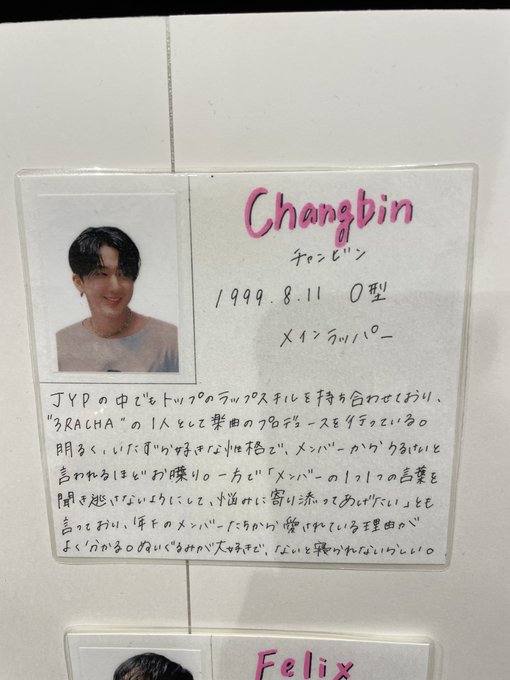 Changbin
チャンビン
1999.8.11 O型
メインラッパー
JYPの中でもトップのラップスキルを持ち合わせており、
"3RACHA"の1人として楽曲のプロデュースを行っている。
明るく、いたずら好きな性格で、メンバーからうるさいと
言われるほどお喋り。一方で「メンバーの1つ1つの言葉を
聞き逃さないようにして、悩みに寄り添ってあげたい」とも
言っており、年下のメンバーたちから愛されている理由が
よく分かる。ぬいぐるみが大好きで、ないと寝られないらしい。
Felix